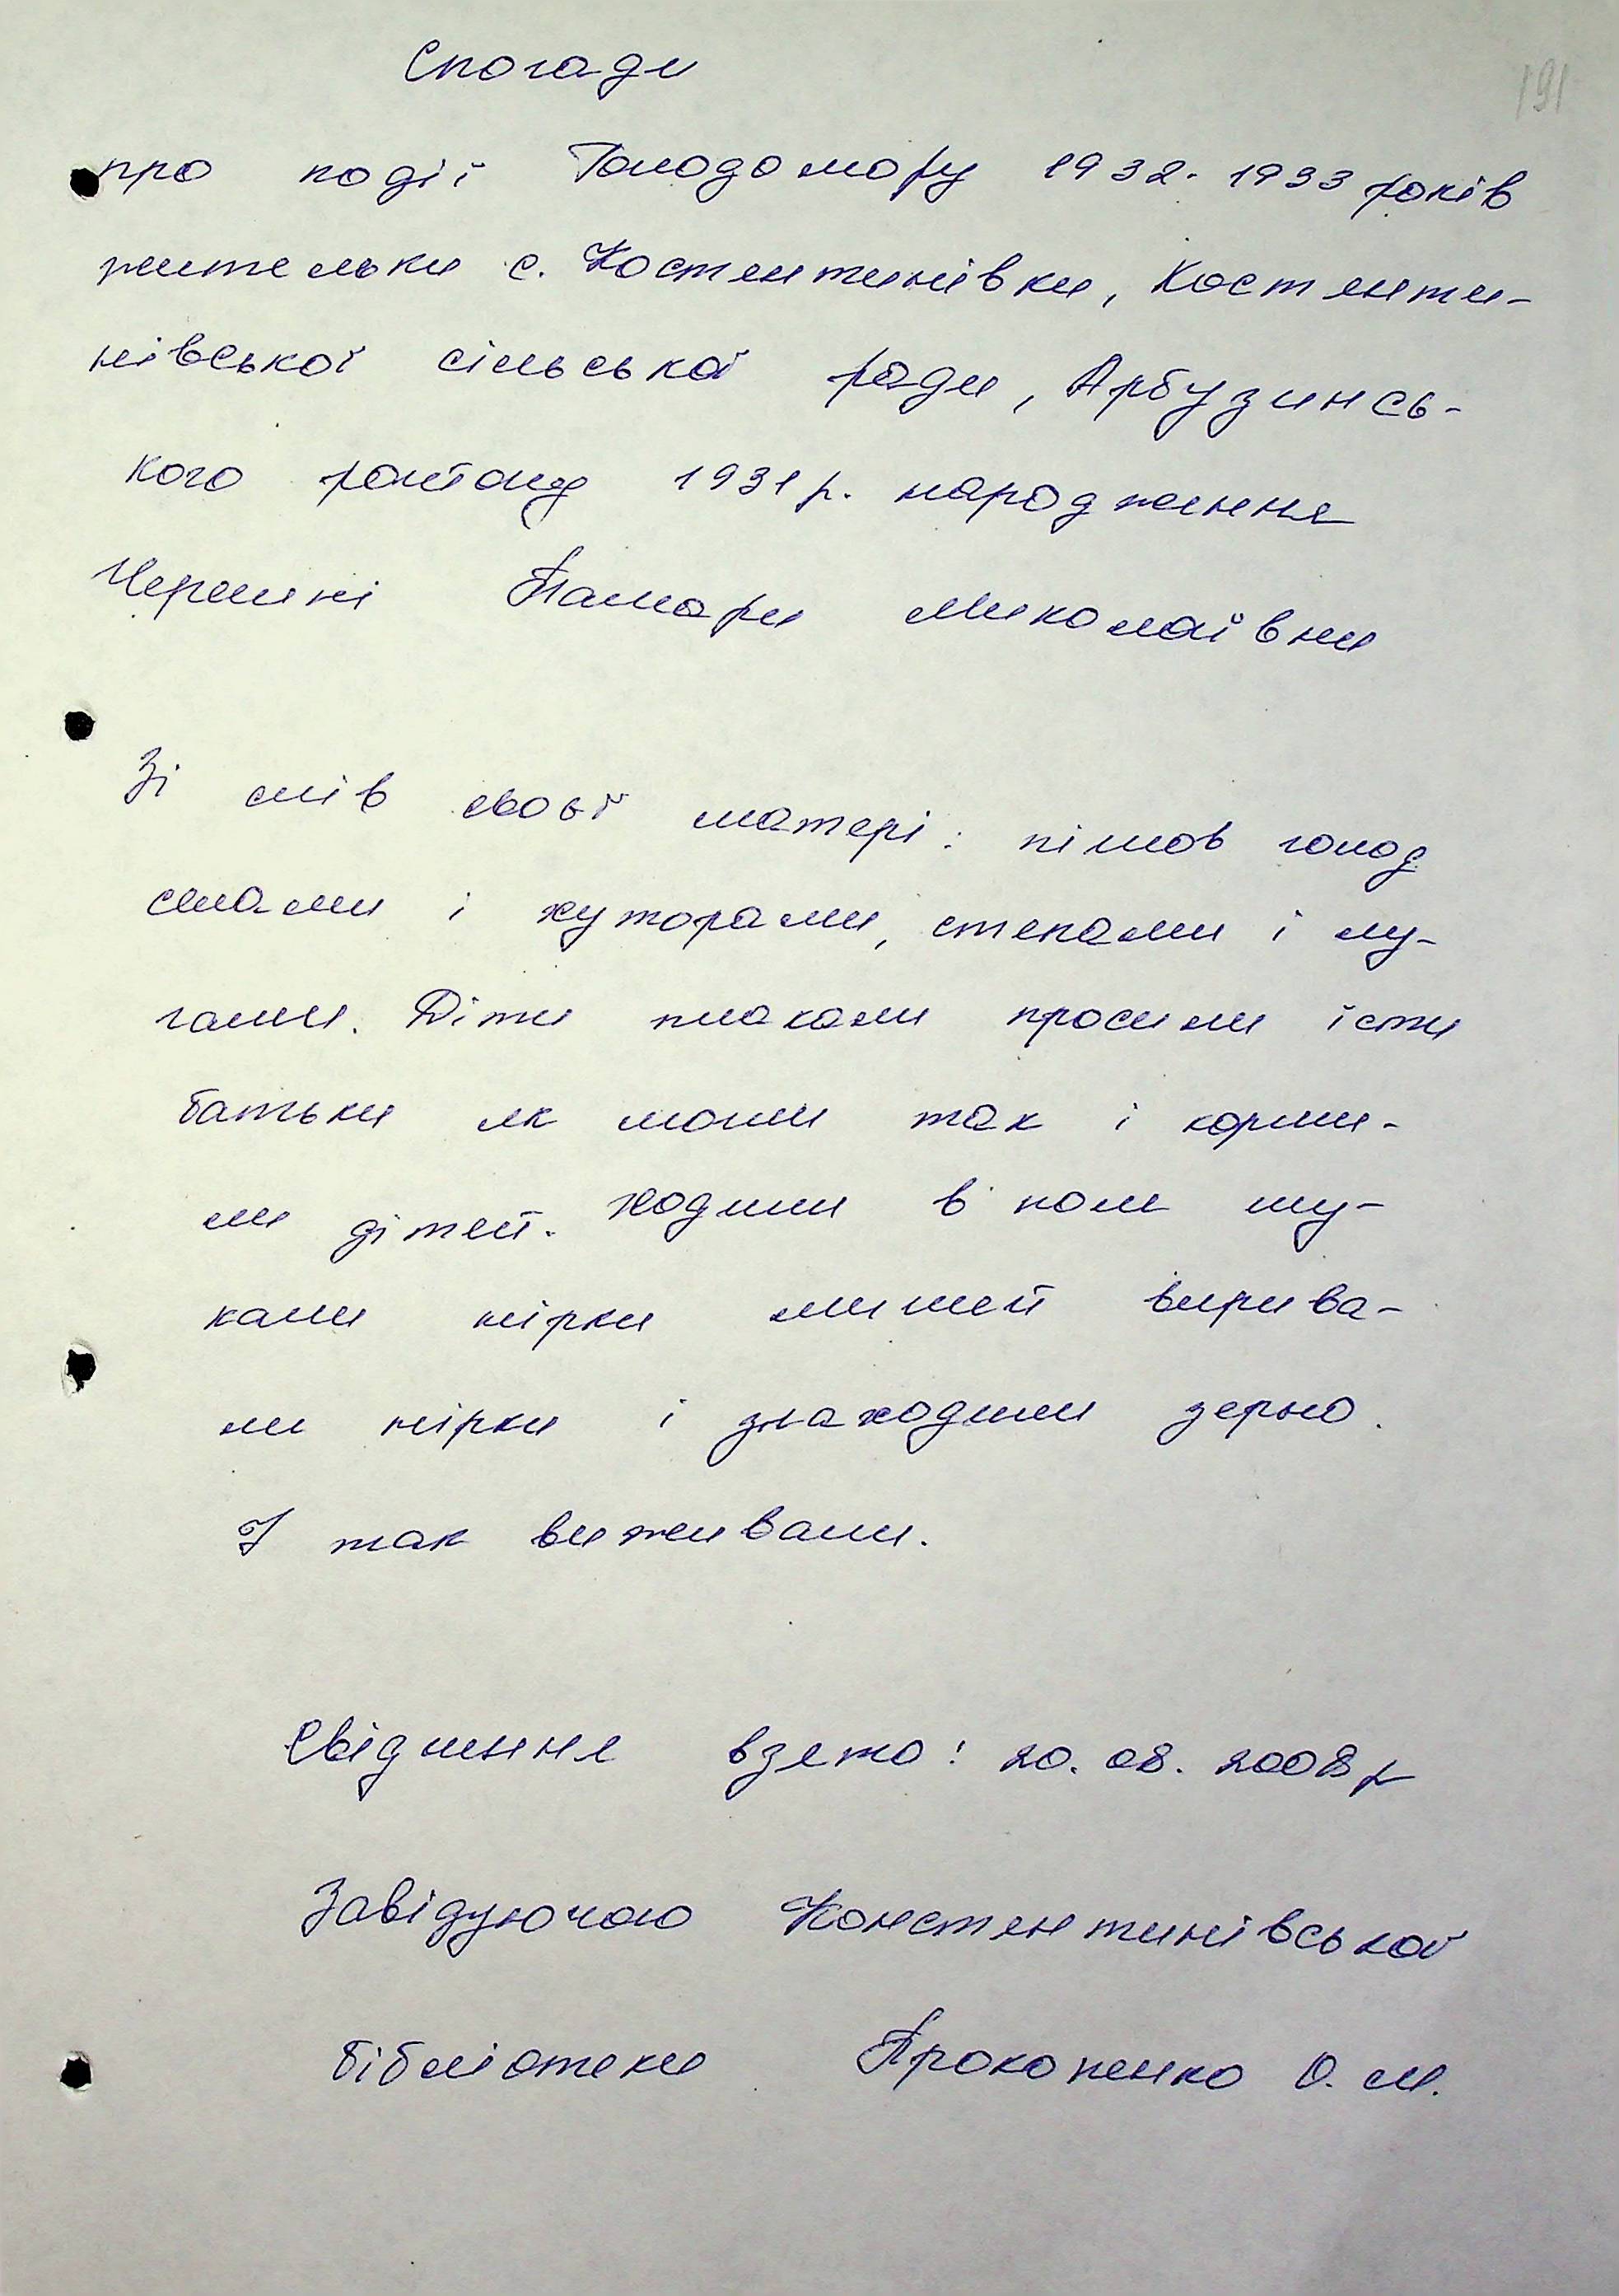 Спогади
191
про події Голодомору 1932-1933 років
жительки с. Костянтинівки, Костянти-
нівської сільської ради, Арбузинсь-
кого району 1931 р. народження
Черешні Тамари Миколаївни
Зі слів своєї матері: пішов голод
селами і хуторами, степами і лу-
гами. Діти плакали просили їсти
батьки як могли так і корми-
ли дітей. Ходили в поле шу-
кали нірки мишей вирива-
ли нірки і знаходили зерно.
І так виживали.
Свідчення взято: 20.08.2008 р
Завідуючою Констянтинівської
бібліотеки Прокопенко О. М.